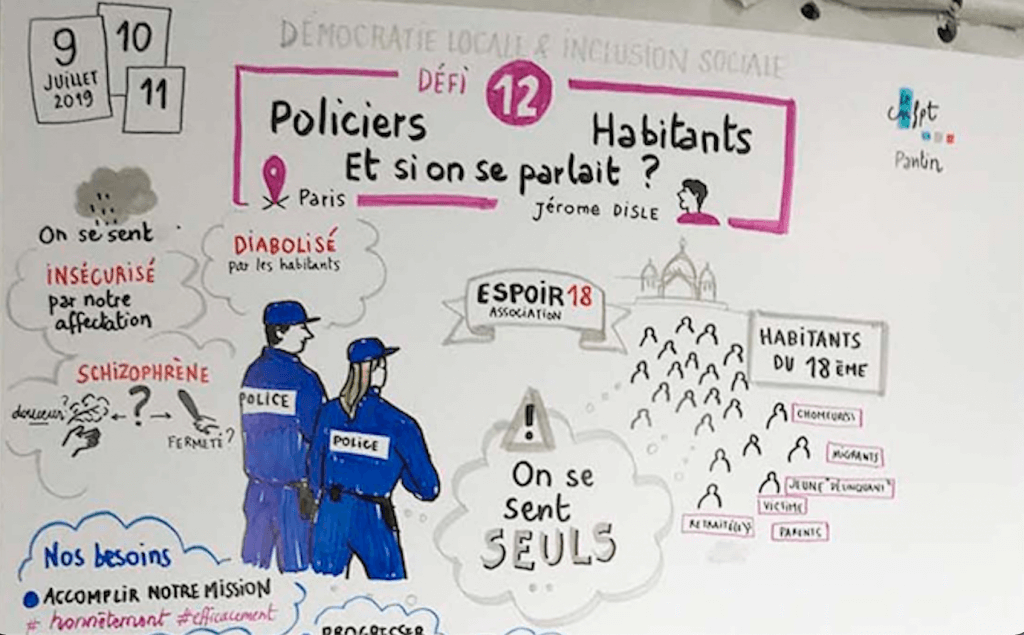 9
JUILLET
2019
10
11
DÉMOCRATIE LOCALE & INCLUSION SOCIALE
DÉFI 12
Policiers Habitants
Et si on se parlait ?
Paris
Jérome DISLE
LE
cnfpt
Pantin
On se sent
INSÉCURISÉ
par notre
affectation
DIABOLISÉ
par les habitants
SCHIZOPHRÈNE
douceur?
?
FERMETÉ?
POLICE
POLICE
ESPOIR 18
ASSOCIATION
HABITANTS
DU 18ÈME
CHOMEUR(S)
MIGRANTS
JEUNE "DÉLINQUANT"
VICTIME
RETRAITÉ(E)
PARENTS
!
On se
sent
SEULS
Nos besoins
ACCOMPLIR NOTRE MISSION
# honnêtement #efficacement
PROGRESSER